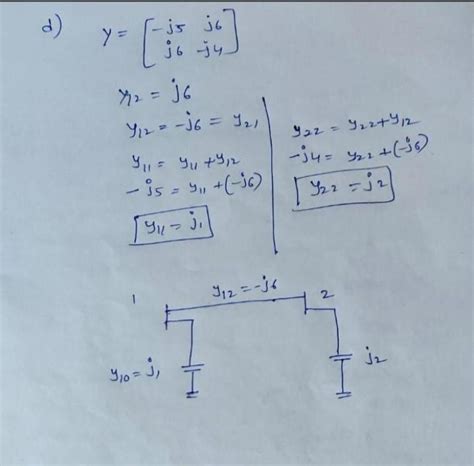 d)
Y = [-j5 j6
j6 -j4]
Y12 = j6
y12 = -j6 = y21
y11 = y11 + y12
-j5 = y11 + (-j6)
y11 = j1
y22 = y22 + y12
-j4 = y22 + (-j6)
y22 = j2
1 y12 = -j6 2
y10 = j1
j2